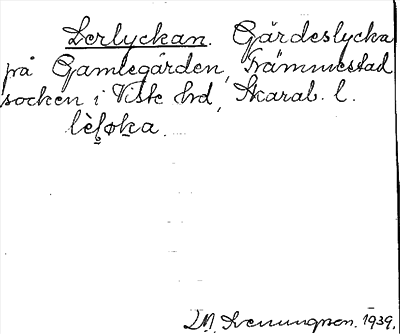 Lerlyckan. Gärdeslycka
på Gamlegården, Främmestad
socken i Viste hrd, Skarab. l.
lèl̥øka.
M. Svenungson. 1939.